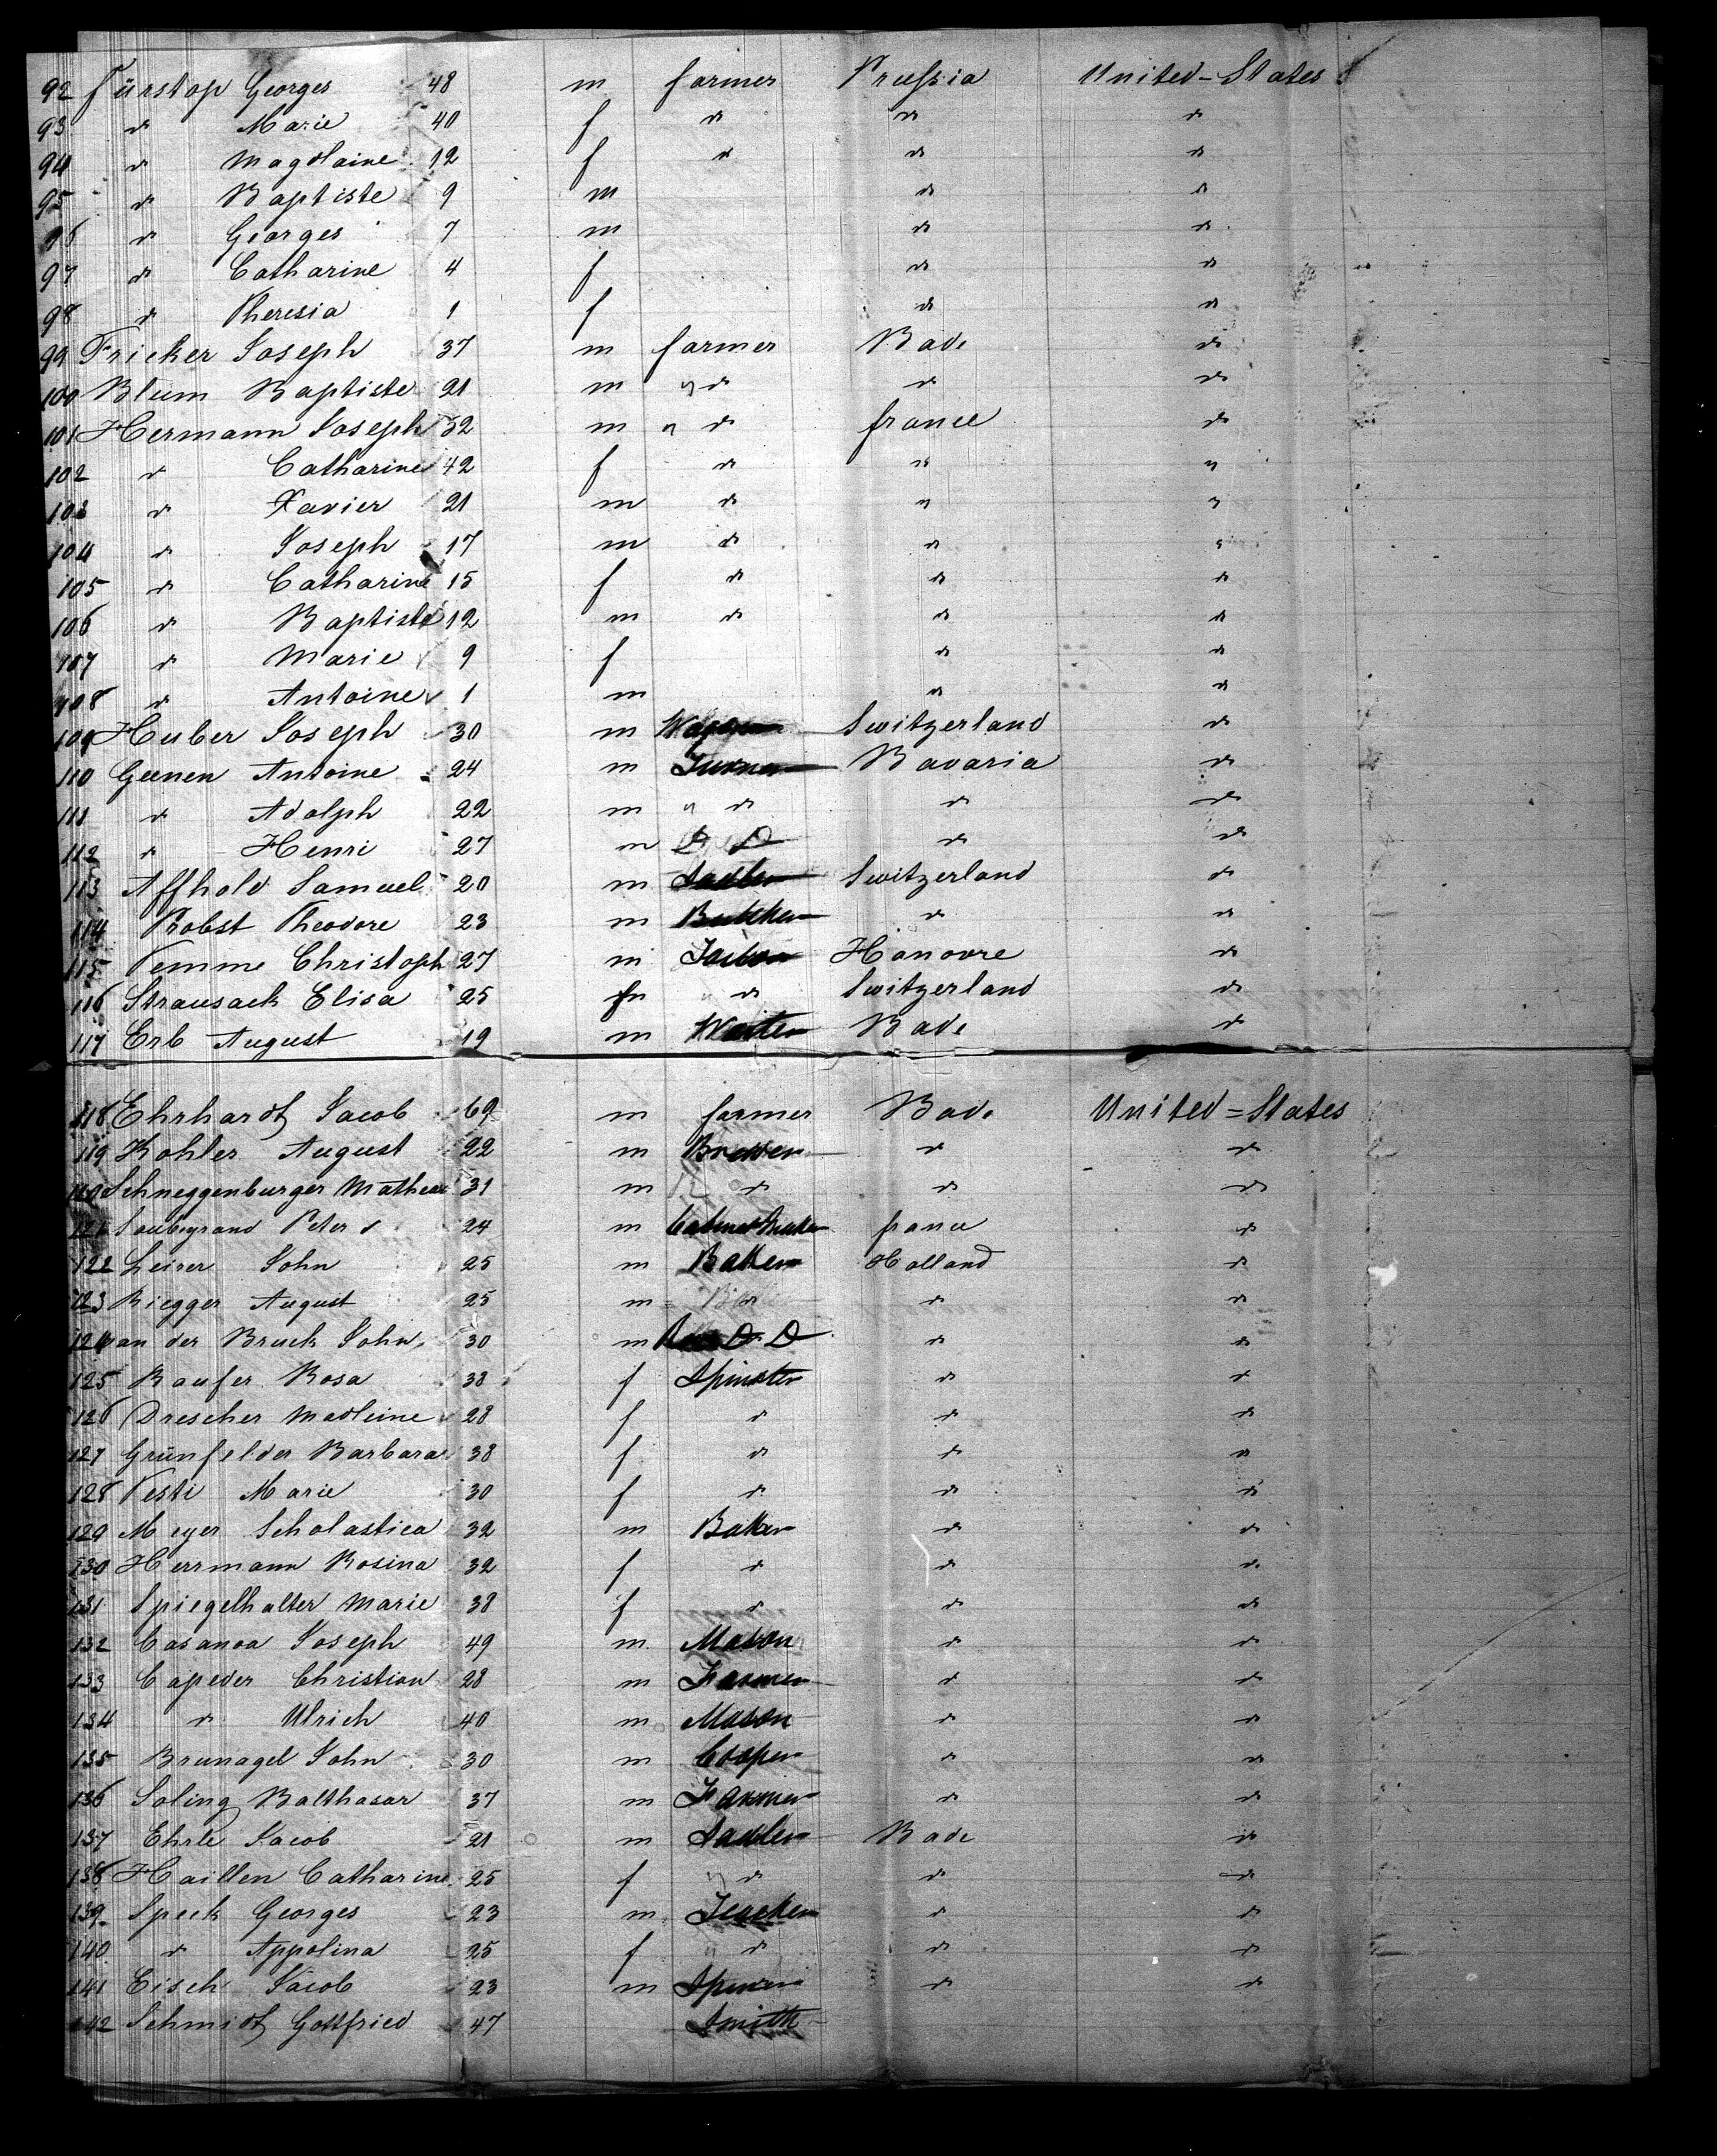 92 Fürstop Georges 48 m farmer Prussia United-States
93 d Marie 40 f d d d
94 d Magdlaine 12 f d d d
95 d Baptiste 9 m d d
96 d Georges 7 m d d
97 d Catharine 4 f d d
98 d Theresia 1 f d d
99 Fricker Joseph 37 m farmer Bade d
100 Blum Baptiste 21 m " d d d
101 Hermann Joseph 52 m " d france d
102 d Catharine 42 f d " "
103 d Xavier 21 m d " "
104 d Joseph 17 m d d "
105 d Catharine 15 f d d d
106 d Baptiste 12 m d d d
107 d Marie 9 f d d
108 d Antoine 1 m d d
109 Huber Joseph 30 m Switzerland d
110 Geenen Antoine 24 m Turner Bavaria d
111 d Adolph 22 m " d d d
112 d Henri 27 m D D d d
113 Affhold Samuel 20 m Sadler Switzerland d
114 Probst Theodore 23 m Butcher d d
115 Pemme Christoph 27 m Tailor Hanovre d
116 Strausack Elisa 25 f " d Switzerland d
117 Erb August 19 m Waiter Bade d
118 Ehrhardt Jacob 69 m farmer Bade United=States
119 Kohler August 22 m Brewer d d
120 Schneggenburger Matheus 31 m d d d
121 Soubeyrand Peter d 24 m Cabinet Maker france d
122 Leiser John 25 m Baker Holland d
123 Riegger August 25 m d d d
124 van der Bruck John 30 m D D d d
125 Raufer Rosa 38 f Spinster d d
126 Drescher Madleine 28 f d d d
127 Grünfelder Barbara 38 f d d d
128 Pesti Marie 30 f d d d
129 Meyer Scholastica 32 m Baker d d
130 Herrmann Rosina 32 f d d d
131 Spiegelhalter Marie 38 f d d d
132 Casanoa Joseph 49 m Mason d d
133 Capeder Christian 28 m Farmer d d
134 d Ulrich 40 m Mason d d
135 Brunagel John 30 m Cooper d d
136 Soling Balthasar 37 m Farmer d d
137 Ehrle Jacob 21 m Sadler Bade d
138 Haillen Catharine 25 f " d d d
139 Speck Georges 23 m Teacher d d
140 d Appolina 25 f " d d d
141 Eisch Jacob 23 m d d
142 Schmidt Gottfried 47 Smith